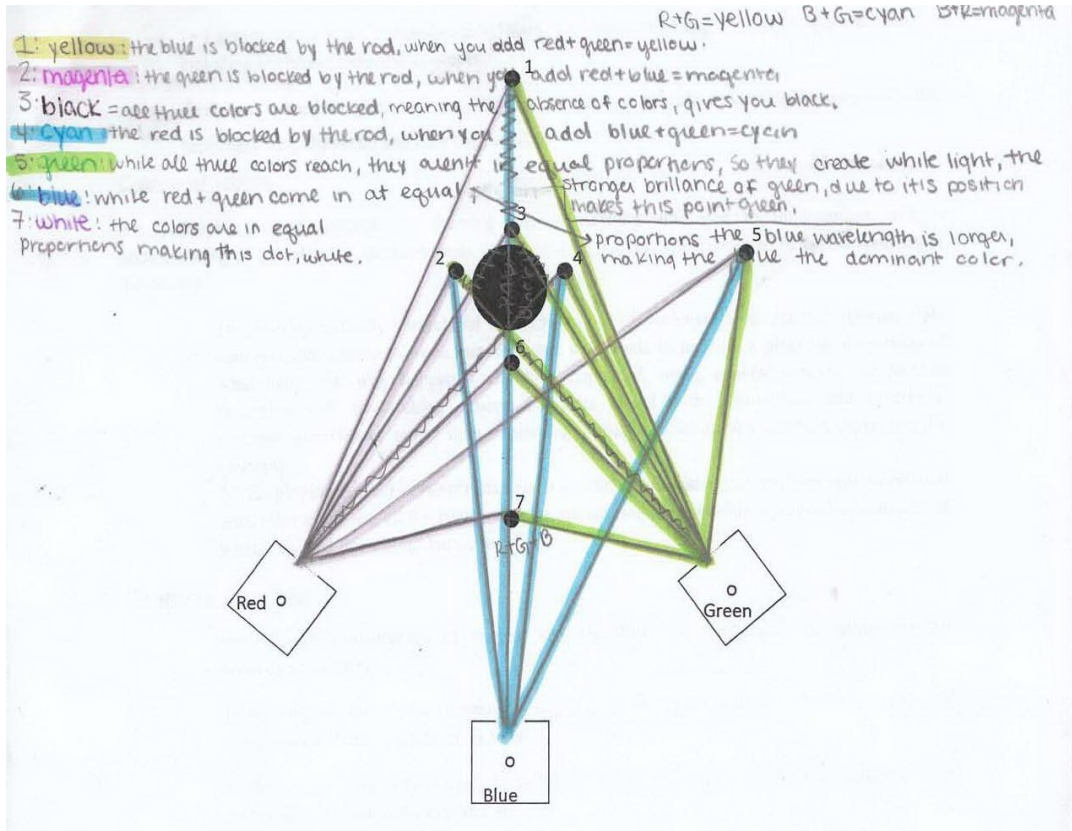 R+G=yellow B+G=cyan B+R=magenta
1: yellow: the blue is blocked by the rod, when you add red+green=yellow.
2: magenta: the green is blocked by the rod, when you add red+blue=magenta
3: black = all three colors are blocked, meaning the absence of colors, gives you black.
4: cyan: the red is blocked by the rod, when you add blue+green=cyan
5: green: while all three colors reach, they arent in equal proportions, so they create while light, the
stronger brillance of green, due to it's position
makes this point green.
6: blue: while red + green come in at equal
proportions the blue wavelength is longer,
making the blue the dominant color.
7: white: the colors are in equal
proportions making this dot, white.
1
2
3
4
5
6
7
R+G+B
Red
Green
Blue